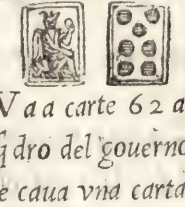 Va a carte 62 a
dro del gouerno
e caua vna carta